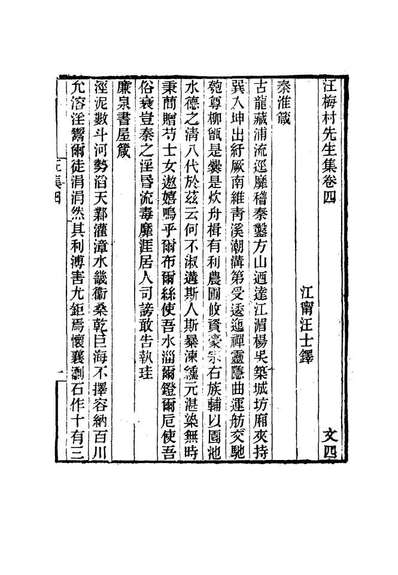 汪梅村先生集卷四　文四
江甯汪士鐸
秦淮箴
古龍藏浦流逕靡稽秦鑿方山迺達江湄楊吳築城坊廂夾持
巽入坤出紆厥南維青溪潮溝第受迻迤禪靈隱曲運舫交馳
匏尊柳瓻是爨是炊舟楫有利農圃攸資豪宗右族輔以園池
水德之淸八代於茲云何不淑遘斯人斯暴湅纁元湛染無時
秉蕳贈芍士女遨嬉嗚乎爾布爾絲使吾水淄爾鐙爾卮使吾
俗衰豈秦之淫昏流毒靡涯居人司謗敢告執珪
廉泉書屋箴
涇泥數斗河勢滔天鄴灌漳水畿衞桑乾巨海不擇容納百川
允溶淫鬻爾徒涓涓然其利溥害尤鉅焉懷襄劃石作十有三